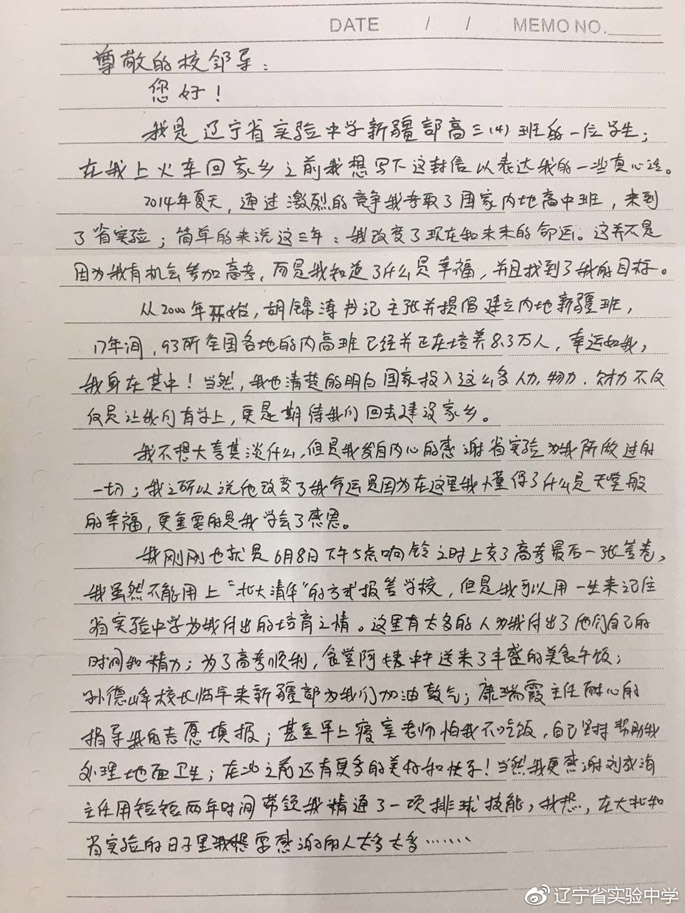 DATE / / MEMO NO.
尊敬的校领导:
您好!
我是辽宁省实验中学新疆部高三(4)班的一位学生;
在我上火车回家乡之前我想写下这封信以表达我的一些真心话。
2014年夏天,通过激烈的竞争我考取了国家内地高中班,来到
了省实验;简单的来说这三年:我改变了现在和未来的命运。这并不是
因为我有机会参加高考,而是我知道了什么是幸福,并且找到了我的目标。
从2000年开始,胡锦涛书记主张并提倡建立内地新疆班,
17年间,93所全国各地的内高班已经并正在培养8.3万人,幸运如我,
我身在其中!当然,我也清楚的明白国家投入这么多人力、物力、财力不仅
仅是让我们有学上,更是期待我们回去建设家乡。
我不想大言其谈什么,但是我发自内心的感谢省实验为我所做过的
一切;我之所以说他改变了我命运是因为在这里我懂得了什么是天堂般
的幸福,更重要的是我学会了感恩。
我刚刚也就是6月8日下午5点响铃之时上交了高考最后一张答卷,
我虽然不能用上“北大清华”的方式报答学校,但是我可以用一生来记住
省实验中学为我付出的培育之情。这里有太多的人为我付出了他们自己的
时间和精力;为了高考顺利,食堂阿姨送来了丰盛的美食午饭;
孙德峰校长临早来新疆部为我们加油鼓气;康瑞霞主任耐心的
指导我的志愿填报;甚至早上寝室老师怕我不吃饭,自己坚持帮助我
处理地面卫生;在此之前还有更多的美好和快乐!当然我更感谢刘成海
主任用短短两年时间带领我精通了一项排球技能,我想,在大北和
省实验的日子里我想要感谢的人太多太多……
辽宁省实验中学